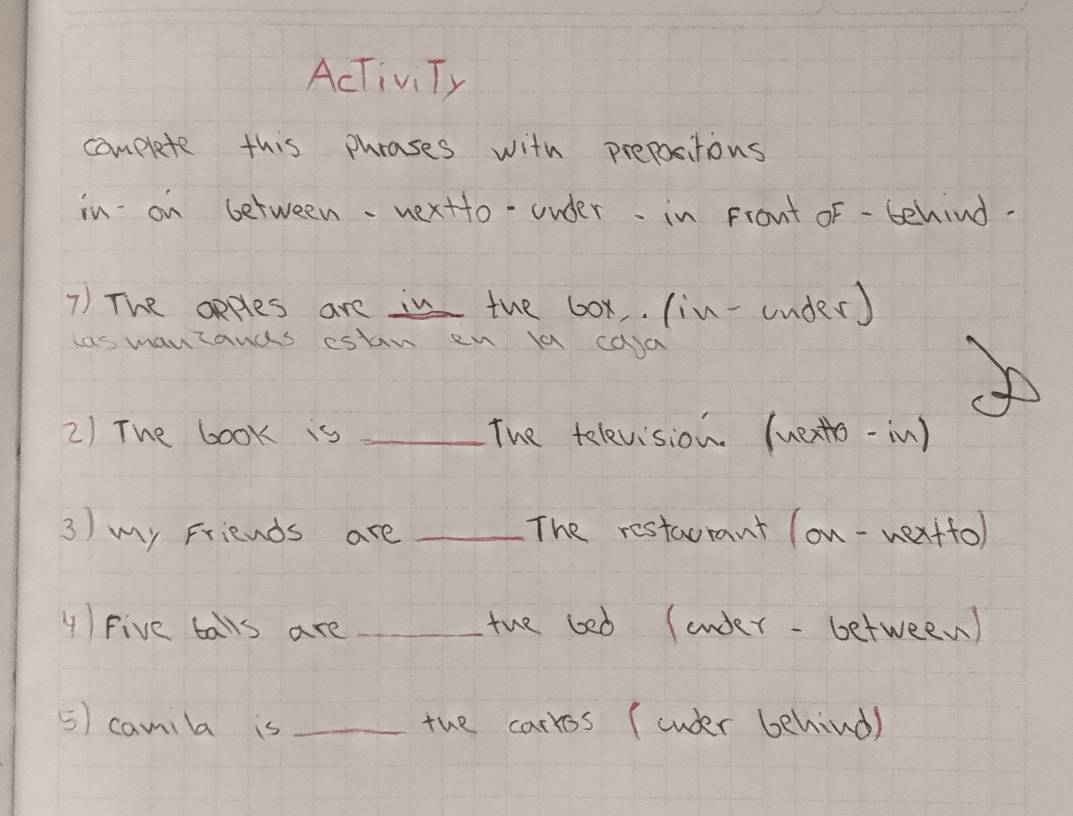 Activity
complete this phrases with prepositions
in - on between - nextto - under - in Front OF - behind -
1) The apples are in the box. (in - under)
las manzanas estan en la caja
2) The book is ______ The television. (nextto - in)
3) my Friends are ______ The restaurant (on - nextto)
4) Five balls are ______ the bed (under - between)
5) camila is ______ the carlos (under behind)